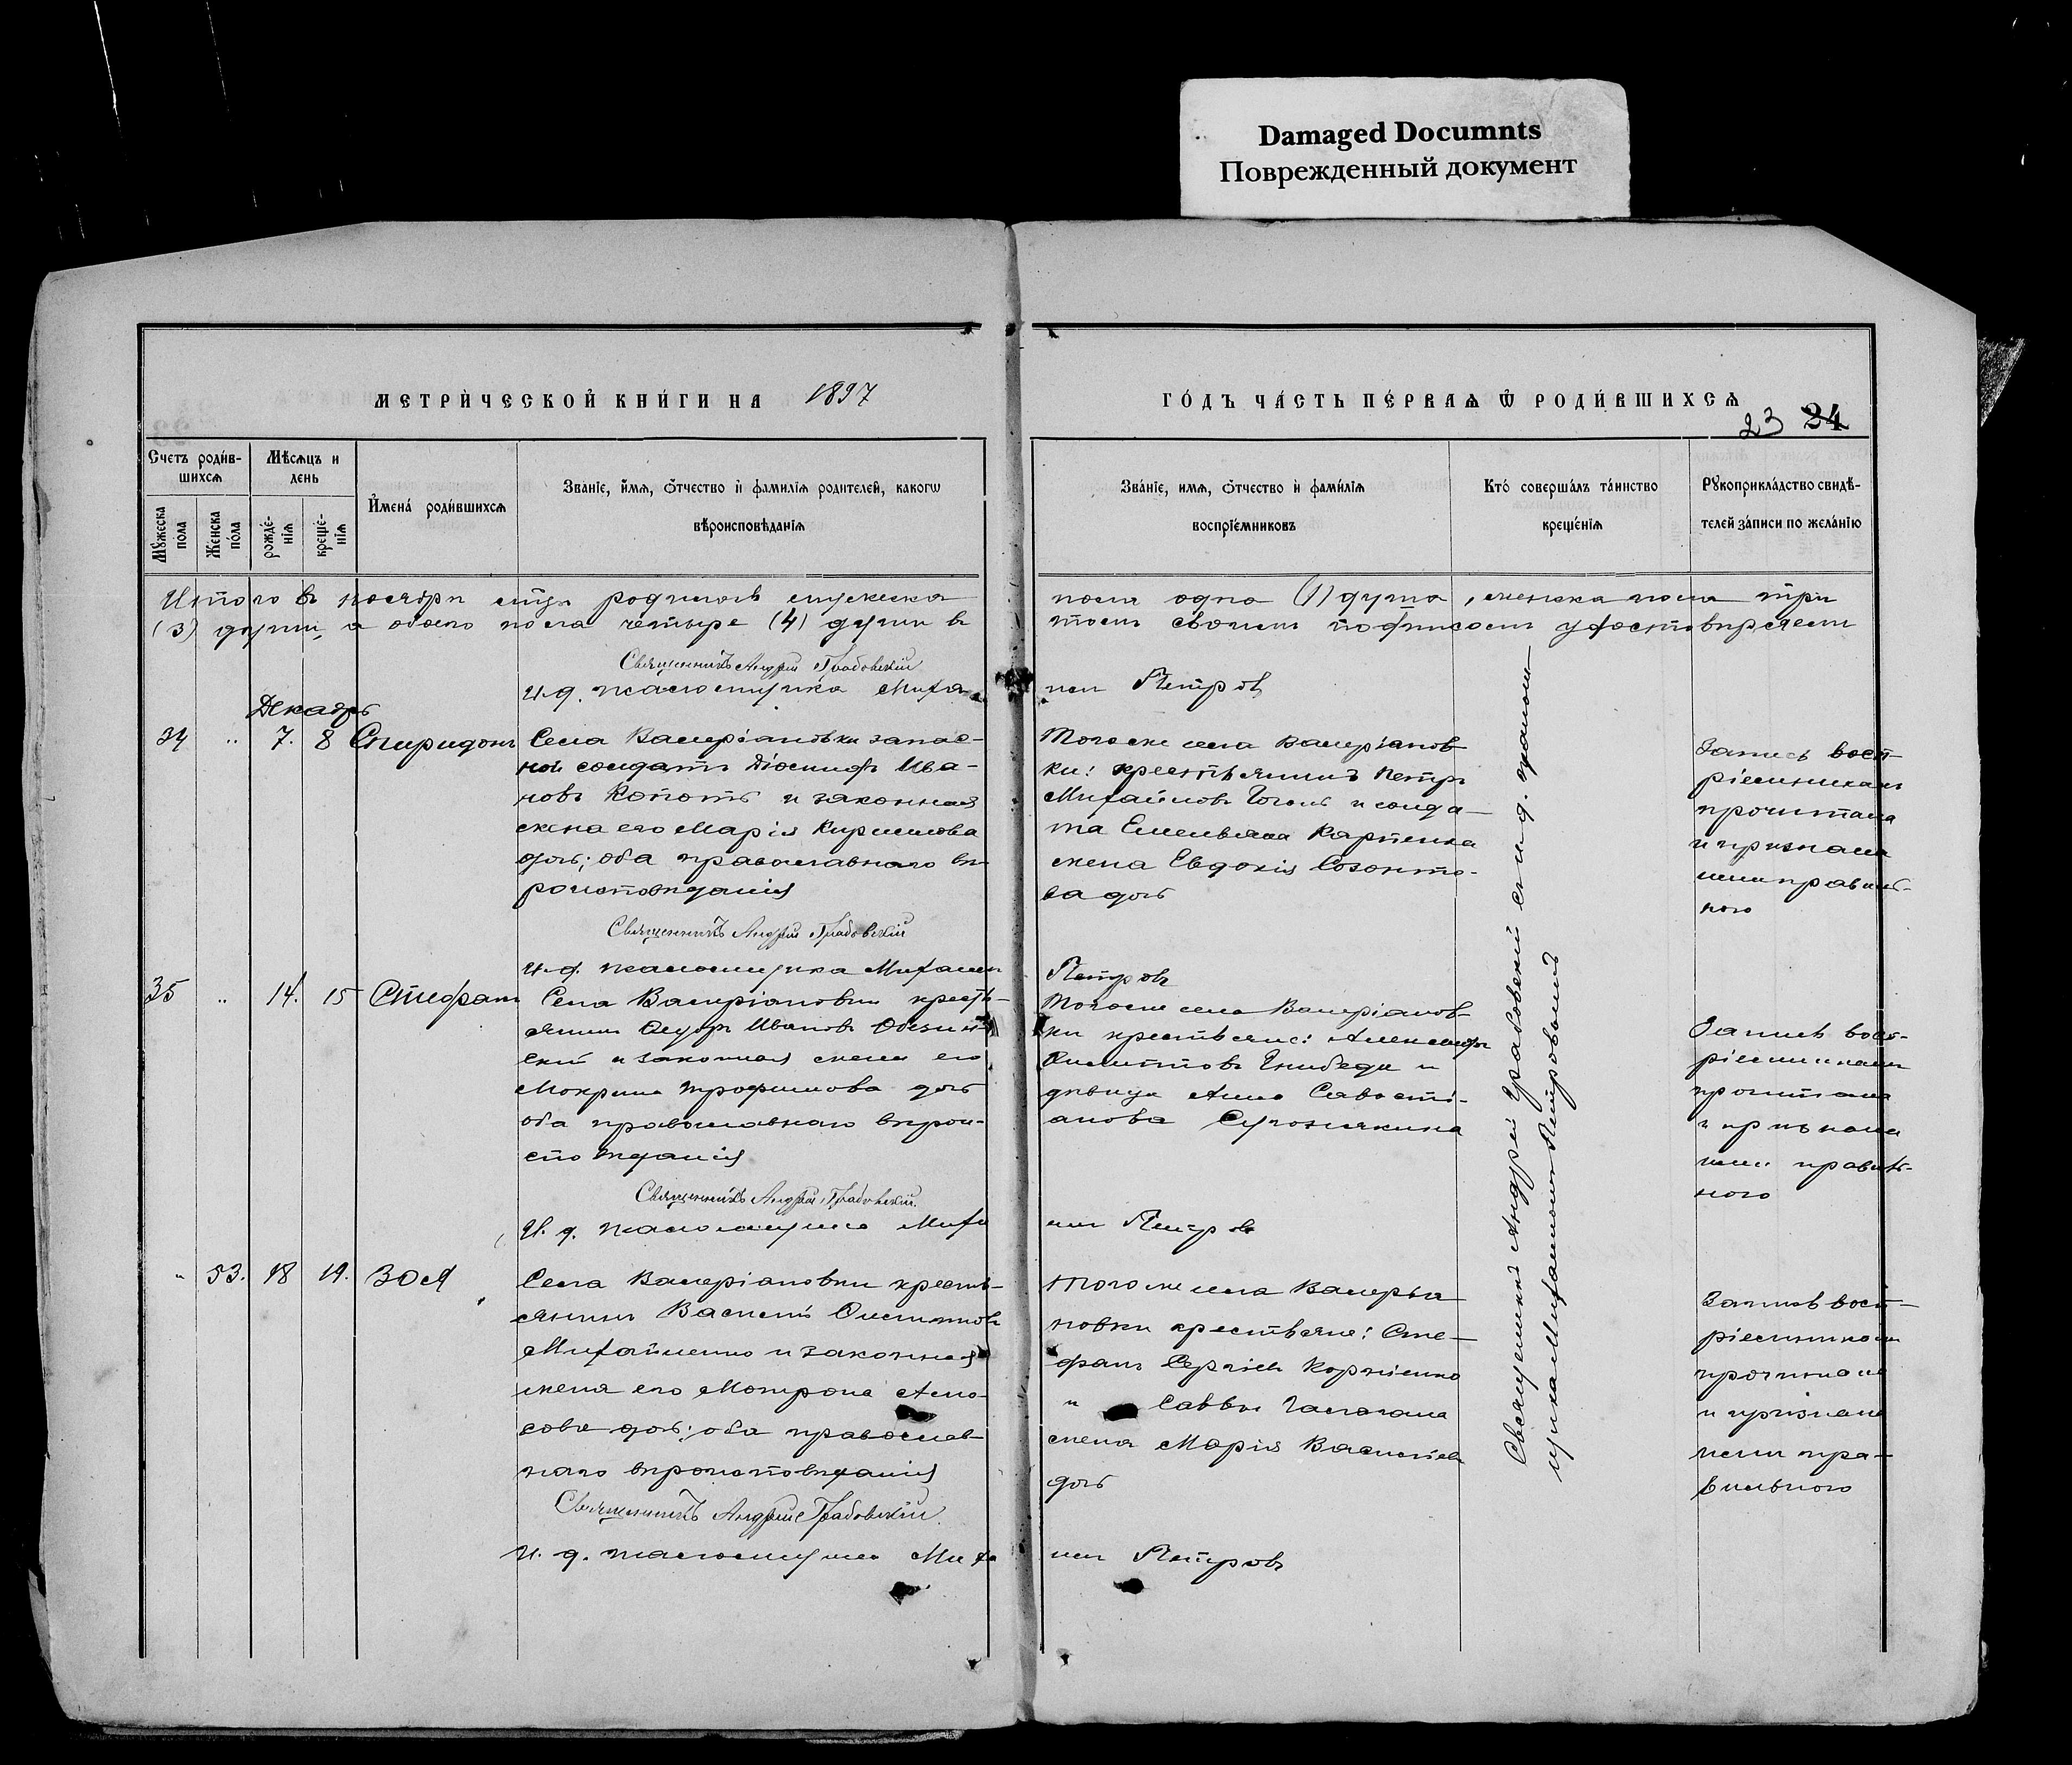 Damaged Documnts
Поврежденный документ
МЕТРИЧЕСКОЙ КНИГИ НА 1897
ГОДЪ ЧАСТЬ ПЕРВАЯ Ѿ РОДИВШИХСЯ
23 24
Счетъ родив-
шихся
Мѣсяцъ и
день
Мужеска
пола
Женска
пола
рожде-
нія
креще-
нія
Имена родившихся
Званіе, имя, отчество и фамилія родителей, какогѡ
вѣроисповѣданія
Званіе, имя, отчество и фамилія
воспріемниковъ
Кто совершалъ таинство
крещенія
Рукоприкладство свидѣ-
телей записи по желанію
Итого въ ноябрѣ родилось мужеска
пола одна (1) душа, женска пола три
(3) души, а обоего пола четыре (4) души въ
томъ своимъ подписомъ удостовѣряемъ
Священникъ Андрей Грабовскій
И. д. псаломщика Михаилъ Петровъ
Декабрь
34 " 7. 8 Спиридонъ
Села Валеріановки запас-
ной солдатъ Іосифъ Ива-
новъ и законная
жена его Марія Кирилова
дочь; оба православнаго вѣ-
роисповѣданія
Тогоже села Валеріанов-
ки: крестьянинъ Петръ
Михайловъ и солда-
та Емельяна Карпенка
жена Евдокія Созонто-
ва дочь
Запись восп-
ріемникамъ
прочитана
и признана
ими правиль-
ною
Священникъ Андрей Грабовскій
И. д. псаломщика Михаилъ Петровъ
35 " 14. 15 Стефанъ
Села Валеріановки кресть-
янинъ Ѳедоръ Ивановъ
и законная жена его
Мокрина Трофимова дочь
оба православнаго вѣрои-
споведанія
Тогоже села Валеріанов-
ки крестьяне: Александръ
и
дѣвица Анна Савасті-
анова
Запись восп-
ріемникамъ
прочитана
и признана
ими правиль-
ного
Священникъ Андрей Грабовскій
И. д. псаломщика Михаилъ Петровъ
" 53. 18 19. Зоя
Села Валеріановки кресть-
янинъ Василій
Михайленко и законная
жена его Матрона
дочь; оба православ-
наго вѣроисповѣданія
Тогоже села Валерья-
новки крестьяне: Сте-
фанъ Корніенко
и Саввы
жена Марія Васильева
дочь
Запись восп-
ріемникамъ
прочитана
и признана
ими пра-
вильного
Священникъ Андрей Грабовскій
И. д. псаломщика Михаилъ Петровъ
Священникъ Андрей Грабовскій съ и. д. псалом-
щика Михаиломъ Петровымъ